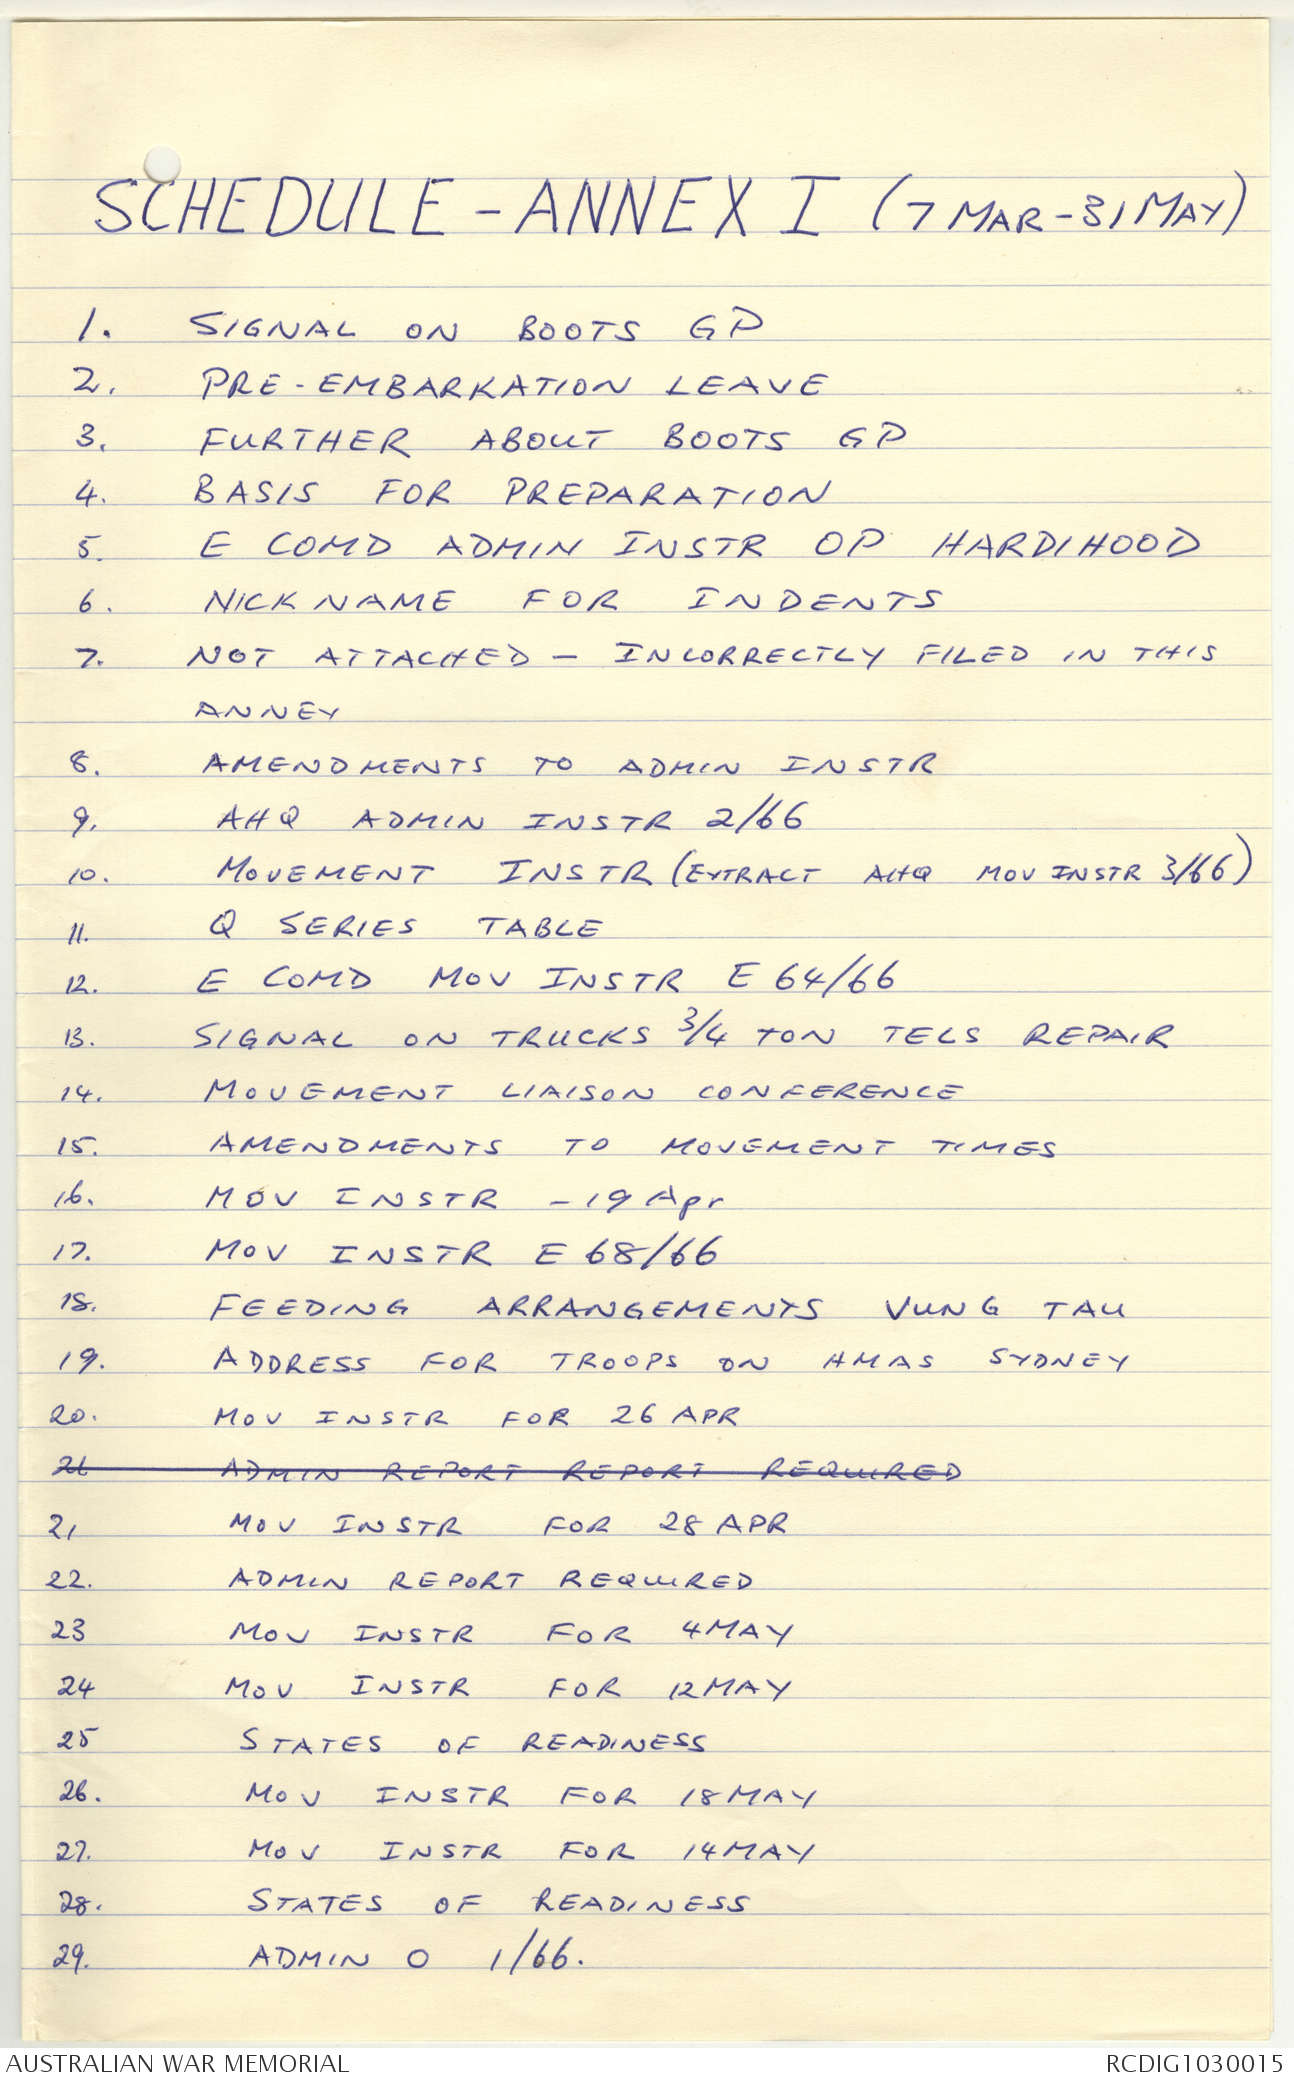 SCHEDULE - ANNEX I (7 MAR - 31 MAY)
1. SIGNAL ON BOOTS GP
2. PRE-EMBARKATION LEAVE
3. FURTHER ABOUT BOOTS GP
4. BASIS FOR PREPARATION
5. E COMD ADMIN INSTR OP HARDIHOOD
6. NICKNAME FOR INDENTS
7. NOT ATTACHED - INCORRECTLY FILED IN THIS
ANNEX
8. AMENDMENTS TO ADMIN INSTR
9. AHQ ADMIN INSTR 2/66
10. MOVEMENT INSTR (EXTRACT AHQ MOV INSTR 3/66)
11. Q SERIES TABLE
12. E COMD MOV INSTR E 64/66
13. SIGNAL ON TRUCKS 3/4 TON TELS REPAIR
14. MOVEMENT LIAISON CONFERENCE
15. AMENDMENTS TO MOVEMENT TIMES
16. MOV INSTR - 19 Apr
17. MOV INSTR E 68/66
18. FEEDING ARRANGEMENTS VUNG TAU
19. ADDRESS FOR TROOPS ON HMAS SYDNEY
20. MOV INSTR FOR 26 APR
21 ADMIN REPORT REPORT REQUIRED
21 MOV INSTR FOR 28 APR
22. ADMIN REPORT REQUIRED
23 MOV INSTR FOR 4 MAY
24 MOV INSTR FOR 12 MAY
25 STATES OF READINESS
26. MOV INSTR FOR 18 MAY
27. MOV INSTR FOR 14 MAY
28. STATES OF READINESS
29. ADMIN O 1/66.
AUSTRALIAN WAR MEMORIAL RCDIG1030015